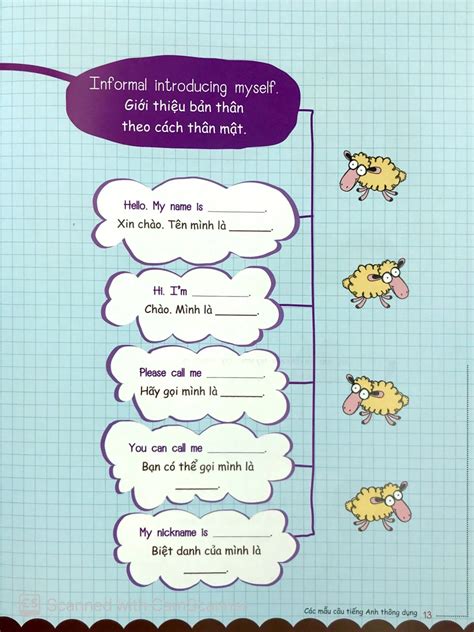 Informal introducing myself.
Giới thiệu bản thân
theo cách thân mật.
Hello. My name is ________.
Xin chào. Tên mình là ________.
Hi. I'm ________.
Chào. Mình là ________.
Please call me ________.
Hãy gọi mình là ________.
You can call me ________.
Bạn có thể gọi mình là
________.
My nickname is ________.
Biệt danh của mình là
________.
Các mẫu câu tiếng Anh thông dụng 13
CS Scanned with CamScanner